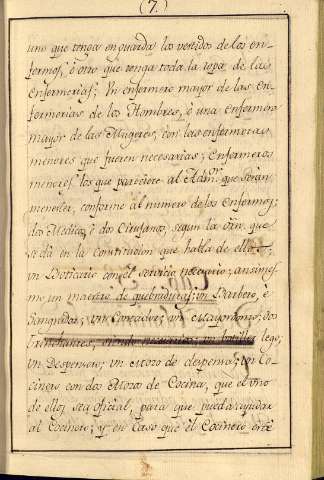 (7.)
uno que tenga en guarda los vestidos de los en-
fermos, è otro que tenga toda la ropa de las
enfermerias; Un enfermero mayor de las en-
fermerias de los Hombres, è una enfermera
mayor de las Mugeres, con las enfermeras
menores que fueren necesarias; Enfermeros
menores los que pareciere al Adm.or que serán
menester, conforme al numero de los Enfermos;
dos Medicos, è dos Cirujanos, segun la orn. que
se dá en la Constitucion que habla de ellos;
un Boticario con el servicio necesario; ansimes-
mo un maestro de quebraduras; un Barbero, è
Sangrador; un Comprador; un Mayordomo; dos
lego;
Un Despensero; Un Mozo de despensa; Un Co-
cinero con dos Mozos de Cocina, que el uno
de ellos sea oficial, para que pueda ayudar
al Cocinero; y en caso que el Cocinero esté